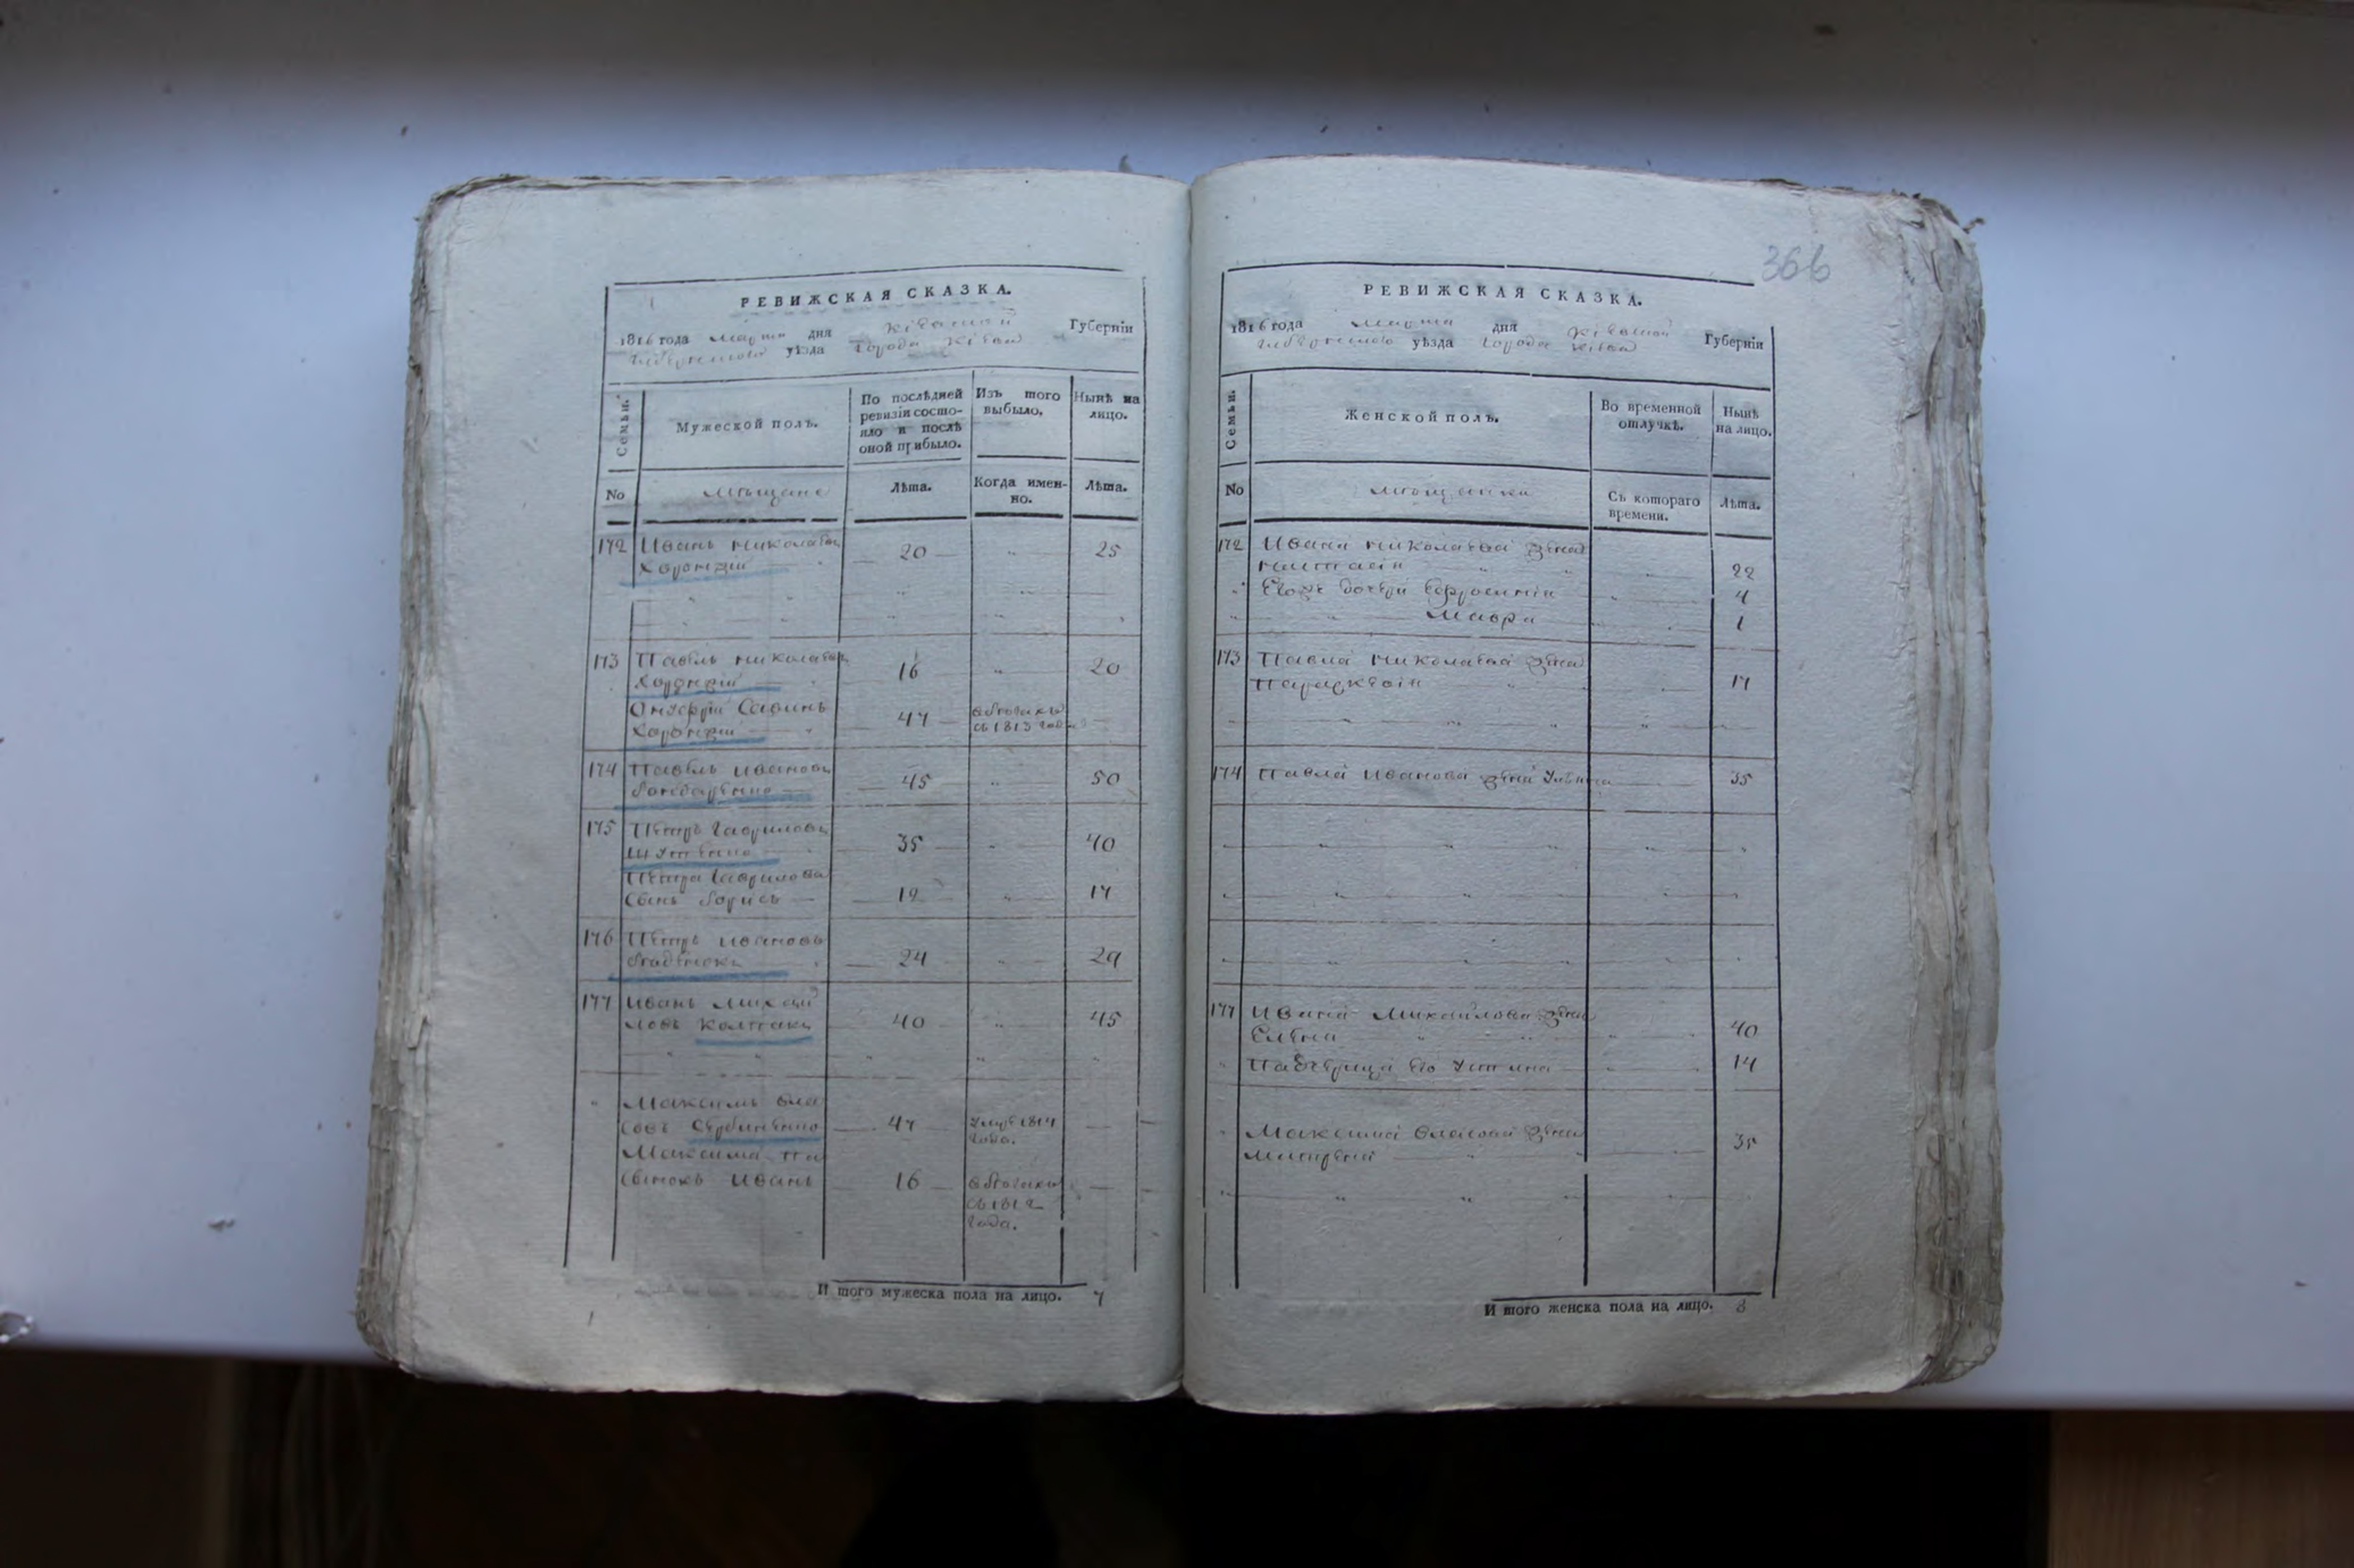 РЕВИЖСКАЯ СКАЗКА.
1816 года марта дня Кіевской Губерніи
уѣзда города Кіева
Семьи.
Мужеской полъ.
По послѣдней ревизіи состояло и послѣ оной прибыло.
Изъ того выбыло.
Нынѣ на лицо.
No
мѣщане
Лѣта.
Когда именно.
Лѣта.
172 Иванъ Николаевъ 20 25
173 Павелъ Николаевъ 16 20
Онуфрій Савинъ 47
съ 1813 года
174 Павелъ Ивановъ 45 50
Бондаренко
175 Петръ Гавриловъ 35 40
Петра Гаврилова
сынъ Борисъ 12 17
176 Петръ Ивановъ
24 29
177 Иванъ Михай
ловъ Колпакъ 40 45
Максимъ Вла
совъ 47 умре 1814
года.
Максима па
сынокъ Иванъ 16
съ 1812
года.
И того мужеска пола на лицо. 7
366
РЕВИЖСКАЯ СКАЗКА.
1816 года марта дня Кіевской Губерніи
уѣзда города Кіева
Семьи.
Женской полъ.
Во временной отлучкѣ.
Нынѣ на лицо.
No
мѣщанки
Съ котораго времени.
Лѣта.
172 Ивана Николаева жена
Настасія 22
Его дочери Ефросинія 4
Мавра 1
173 Павла Николаева жена
Параскевія 17
174 Павла Иванова жена Ульяна 35
177 Ивана Михайлова жена
Елена 40
Падчерица его Устина 14
Максима Власова жена
Матрена 35
И того женска пола на лицо. 8